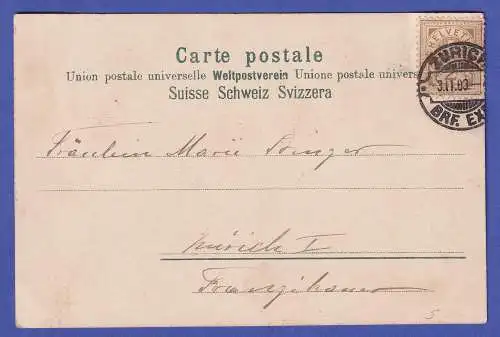 Carte postale
Union postale universelle Weltpostverein Unione postale univers
Suisse Schweiz Svizzera
HELVET
ZÜRICH
3.II.03
BRF. EX
Fräulein Marie
Zürich I
5